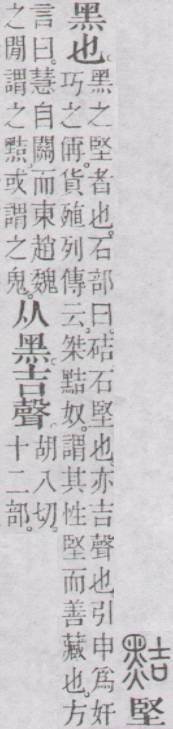 黠 堅
黑也。黑之堅者也。石部曰。硈石堅也。亦吉聲也。引申爲奸
巧之偁。貨殖列傳云。桀黠奴。謂其性堅而善藏也。方
言曰。慧自關而東趙魏
之閒謂之黠。或謂之鬼。从黑吉聲。胡八切。
十二部。